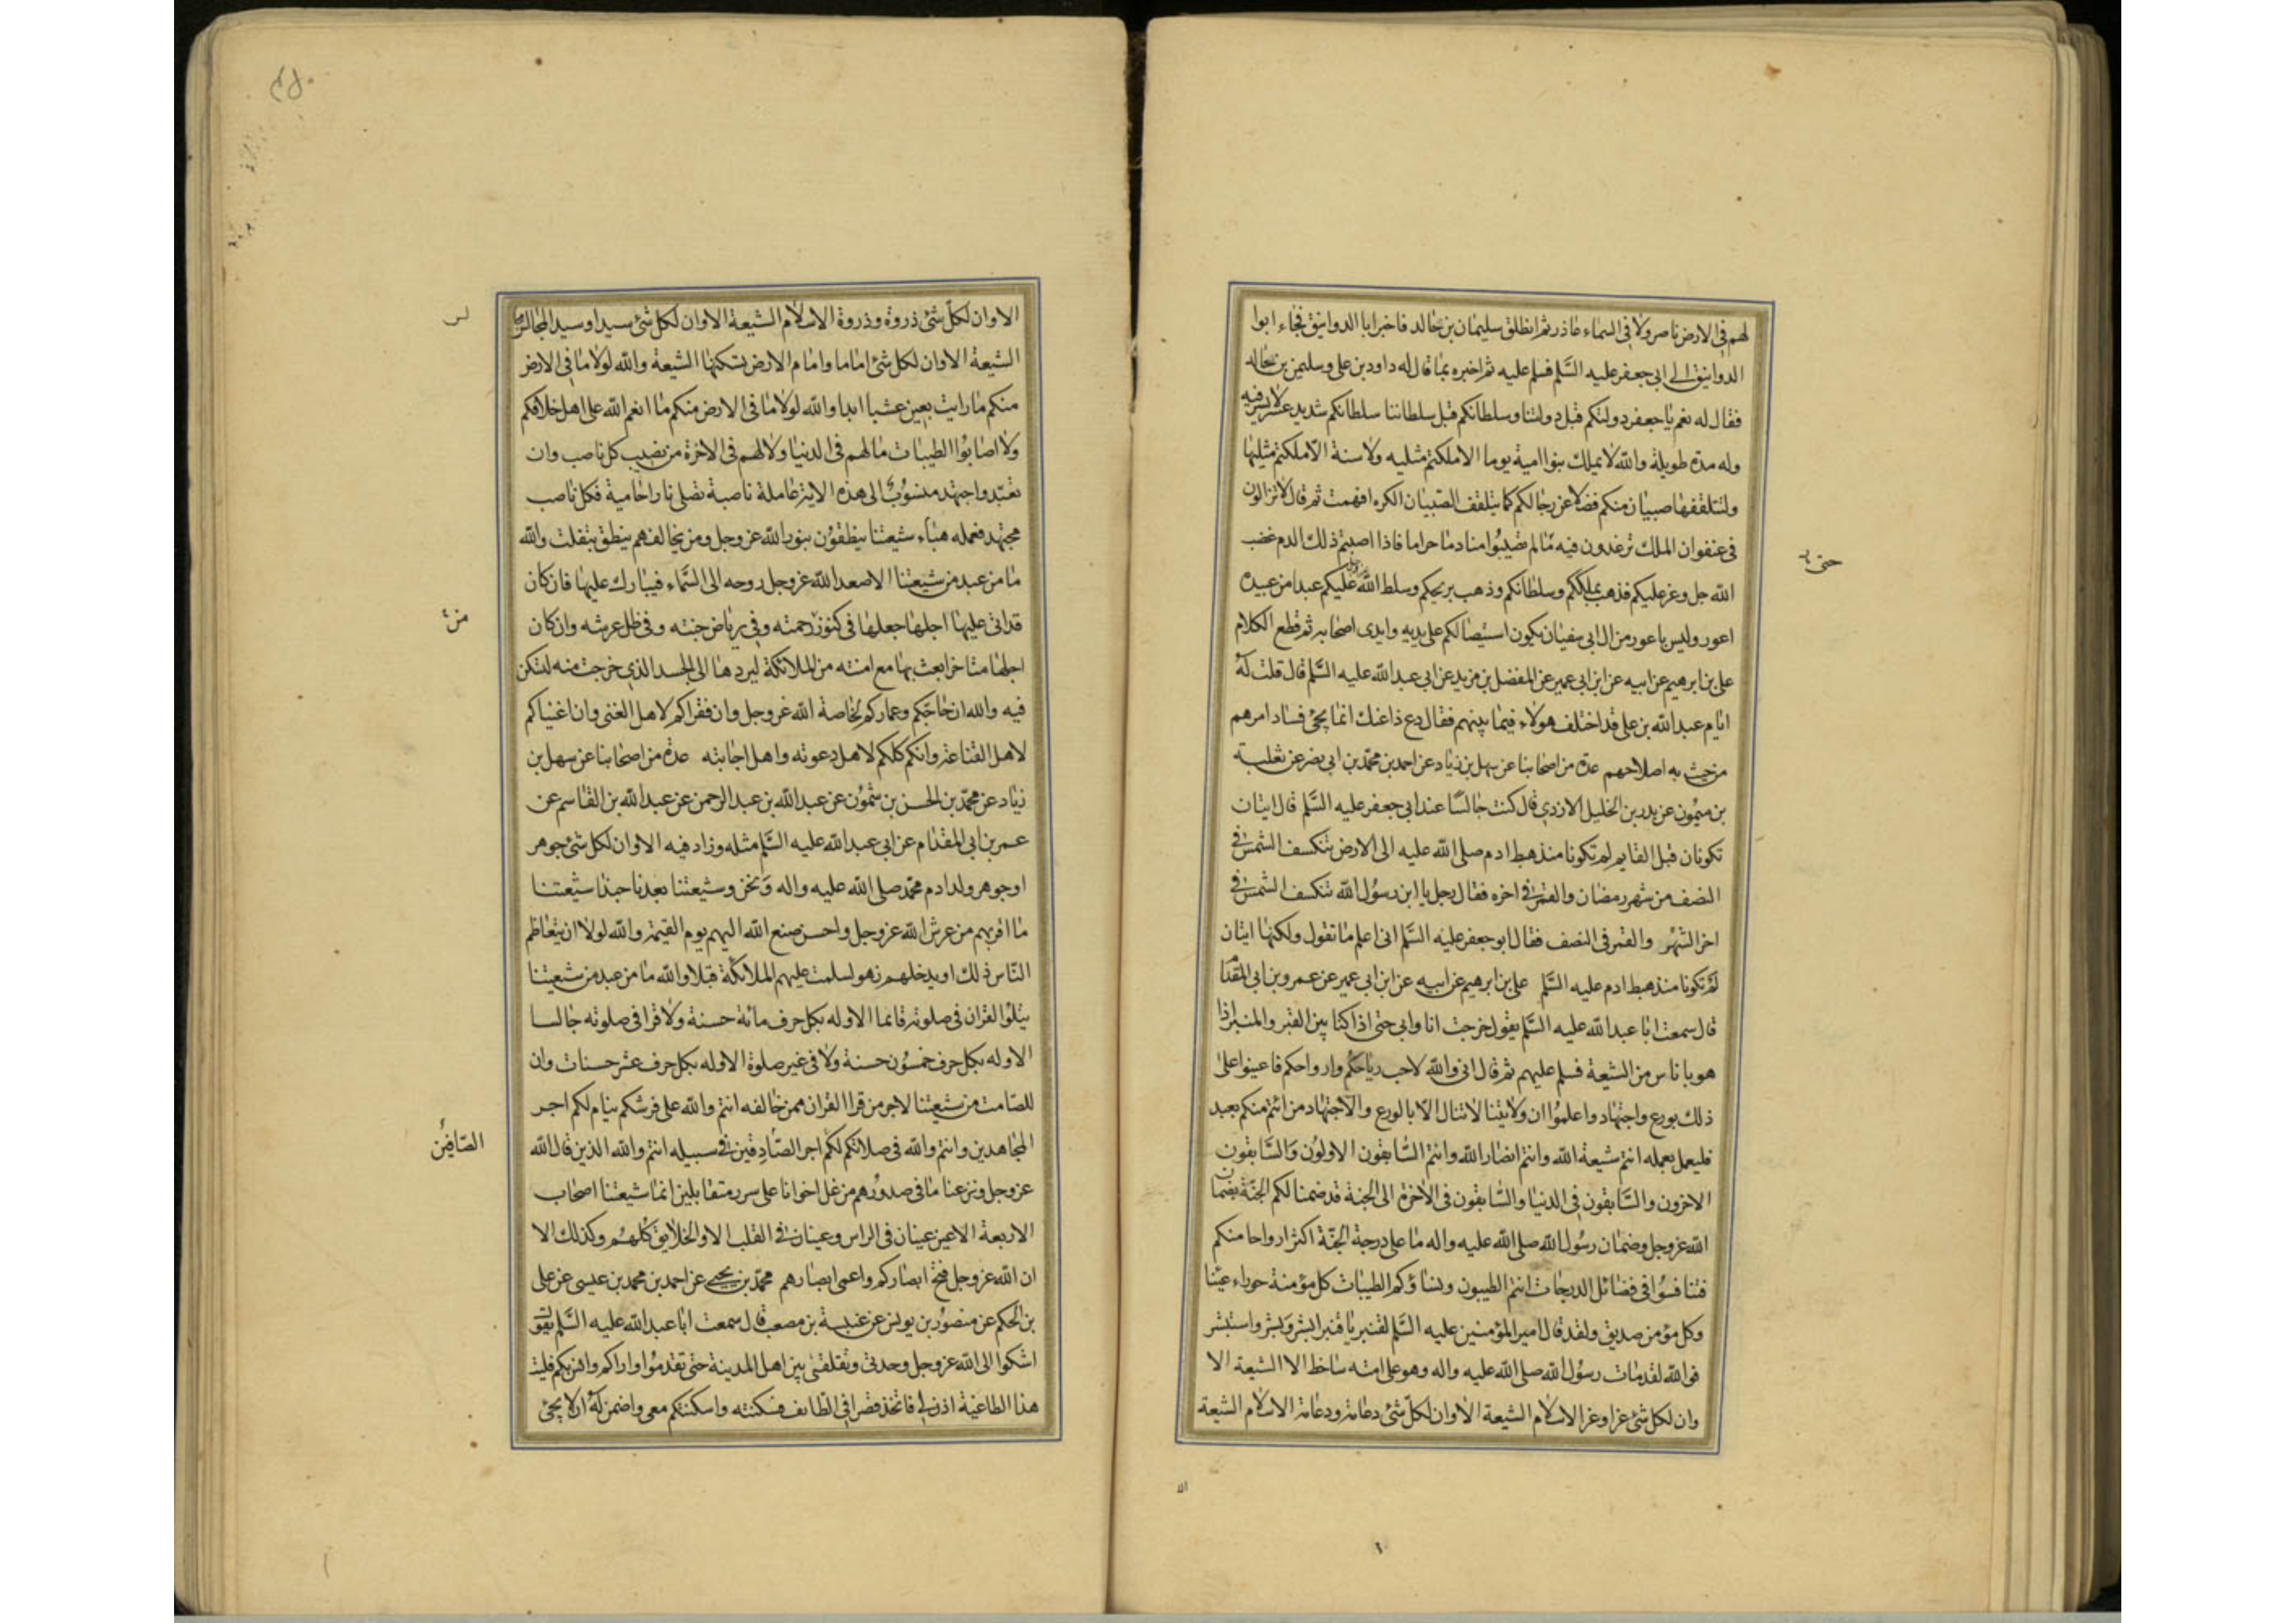 لهم فى الارض ناصر ولا فى السماء عاذر ثم انطلق سليمان بن خالد فاخبر ابا الدوانيق فجاء ابوا
الدوانيق الى ابى جعفر عليه السَّلم فسلم عليه ثم اخبره بما قال له داود بن على وسليمن بن خالد
فقال له نعم يا جعفر دولتكم قبل دولتنا وسلطانكم قبل سلطاننا سلطانكم شديد عسر لا يسر فيه
وله مدة طويلة والله لا يملك بنوا امية يوما الا ملكتم مثليه ولا سنة الا ملكتم مثليها
ولتتلقفها صبيان منكم فضلا عن رجالكم كما يتلقف الصّبيان الكره افهمت ثم قال لا تزالون
فى عنفوان الملك ترغدون فيه ما لم تصيبُوا منا دما حراما فاذا اصبتم ذلك الدم غضب
الله جل وعز عليكم فذهب بملككم وسلطانكم وذهب بريحكم وسلط الله عليكم عبدا من عبيده
اعور وليس باعور من ال ابى سفيان يكون استيصالكم على يديه وايدى اصحابه ثم قطع الكلام
على بن ابرهيم عن ابيه عن ابن ابى عمير عن المفضل بن مزيد عن ابى عبد الله عليه السَّلم قال قلت له
ايام عبد الله بن على قد اختلف هولاء فيما بينهم فقال دع ذا عنك انما يجئ فساد امرهم
من حيث به اصلاحهم عدة من اصحابنا عن سهل بن زياد عن احمد بن محمّد بن ابى نصر عن ثعلبة
بن ميمُون عن بدر بن الخليل الازدى قال كنت جالسًا عند ابى جعفر عليه السَّلم قال ايتان
تكونان قبل القايم لم تكونا منذ هبط ادم صلى الله عليه الى الارض تنكسف الشمس فى
النصف من شهر رمضان والقمر فى اخره فقال رجل يا ابن رسُول الله تنكسف الشمس فى
اخر الشهر والقمر فى النصف فقال ابو جعفر عليه السَّلم انى اعلم ما تقول ولكنها ايتان
لم تكونا منذ هبط ادم عليه السَّلم على بن ابرهيم عن ابيه عن ابن ابى عمير عن عمرو بن ابى المقدام
قال سمعت ابا عبد الله عليه السَّلم يقول خرجت انا وابى حتى اذا كنا بين القبر والمنبر اذا
هو باناس من الشيعة فسلم عليهم ثم قال انى والله لاحب رياحكم وارواحكم فاعينوا على
ذلك بورع واجتهاد واعلموُا ان ولايتنا لا تنال الا بالورع والاجتهاد من ائتم منكم بعبد
فليعمل بعمله انتم شيعة الله وانتم انصار الله وانتم السَّابقون الاولوُن وَالسَّابقون
الاخرون والسَّابقون فى الدنيا والسَّابقون فى الاخرة الى الجنة قد ضمنا لكم الجنَّة بضمان
الله عز وجل وضمان رسُول الله صلى الله عليه واله ما على درجة الجنّة اكثر ارواحا منكم
فتنافسُوا فى فضائل الدرجات انتم الطيبون ونساؤكم الطيبات كل مؤمنة حوراء عينا
وكل مؤمن صديق ولقد قال امير المؤمنين عليه السَّلم لقنبر يا قنبر ابشر وَبشر واستبشر
فو الله لقد مات رسُول الله صلى الله عليه واله وهو على امته ساخط الا الشيعة الا
وان لكل شئ عزا وعز الاسلام الشيعة الا وان لكلّ شئ دعامة ودعامة الاسلام الشيعة
حتى
الا
الا وان لكلّ شئ ذروة وذروة الاسلام الشيعة الا وان لكل شئ سيدا وسيد المجالس مجالس
الشيعة الا وان لكل شئ اماما وامام الارض تسكنها الشيعة والله لولا ما فى الارض
منكم ما رايت بعين عشبا ابدا والله لولا ما فى الارض منكم ما انعم الله على اهل خلافكم
ولا اصابوُا الطيبات ما لهم فى الدنيا ولا لهم فى الاخرة من نصيب كل ناصب وان
تعبّد واجتهد منسُوبٌ الى هذه الاية عاملة ناصبة تصلى نارا حامية فكل ناصب
مجتهد فعمله هباء شيعتنا ينطقوُن بنور الله عز وجل ومن يخالفهم ينطق بتفلت والله
ما من عبد من شيعتنا الا صعد الله عز وجل روحه الى السَّماء فيبارك عليها فان كان
قد اتى عليها اجلها جعلها فى كنوز رحمته وفى رياض جنته وفى ظل عرشه وان كان
اجلها متاخرا بعث بها مع امنته من الملائكة ليردها الى الجسد الذى خرجت منه لتسكن
فيه والله ان حاجّكم وعماركم لخاصة الله عز وجل وان فقراكم لاهل الغنى وان اغنياكم
لاهل القناعة وانكم كلكم لاهل دعوته واهل اجابته عدة من اصحابنا عن سهل بن
زياد عن محمّد بن الحسن بن شمُّون عن عبد الله بن عبد الرحمن عن عبد الله بن القاسم عن
عمر بن ابى المقدام عن ابى عبد الله عليه السَّلم مثله وزاد فيه الا وان لكل شئ جوهر
اوجوهر ولد ادم محمّد صلى الله عليه واله وَنحن وشيعتنا بعدنا حبذا شيعتنا
ما اقربهم من عرش الله عز وجل واحسن صنع الله اليهم يوم القيمة والله لولا ان يتعاظم
النّاس ذلك او يدخلهم زهو لسلمت عليهم الملائكة قبلا والله ما من عبد من شيعتنا
يتلوُا القران فى صلوته قائما الا وله بكل حرف مائة حسنة ولا قرا فى صلوته جالسا
الا وله بكل حرف خمسُون حسنة ولا فى غير صلوة الا وله بكل حرف عشر حسنات وان
للصّامت من شيعتنا لاجر من قرا القران ممن خالفه انتم والله على فرشكم نيام لكم اجر
المجاهدين وانتم والله فى صلاتكم لكم اجر الصّادِقين فى سبيله انتم والله الذين قال الله
عز وجل ونزعنا ما فى صدوُرهم من غل اخوانا على سرر متقابلين انما شيعتنا اصحاب
الاربعة الاعين عينان فى الراس وعينان فى القلب الا والخلايق كلهُم وكذلك الا
ان الله عز وجل فتح ابصاركم واعمى ابصارهم محمّد بن يحيى عن احمد بن محمد بن عيسى عن على
بن الحكم عن منصوُر بن يونس عن عنبسة بن مصعب قال سمعت ابا عبد الله عليه السَّلم يقول
اشكوا الى الله عز وجل وحدتى وتقلقلى بين اهل المدينة حتى تقدموُا واراكم وانس بكم فليت
هذا الطاغية اذن لى فاتخذ قصرا فى الطّائف فسكنته واسكنتكم معى واضمن له ان لا يجئ
من
الصّافين